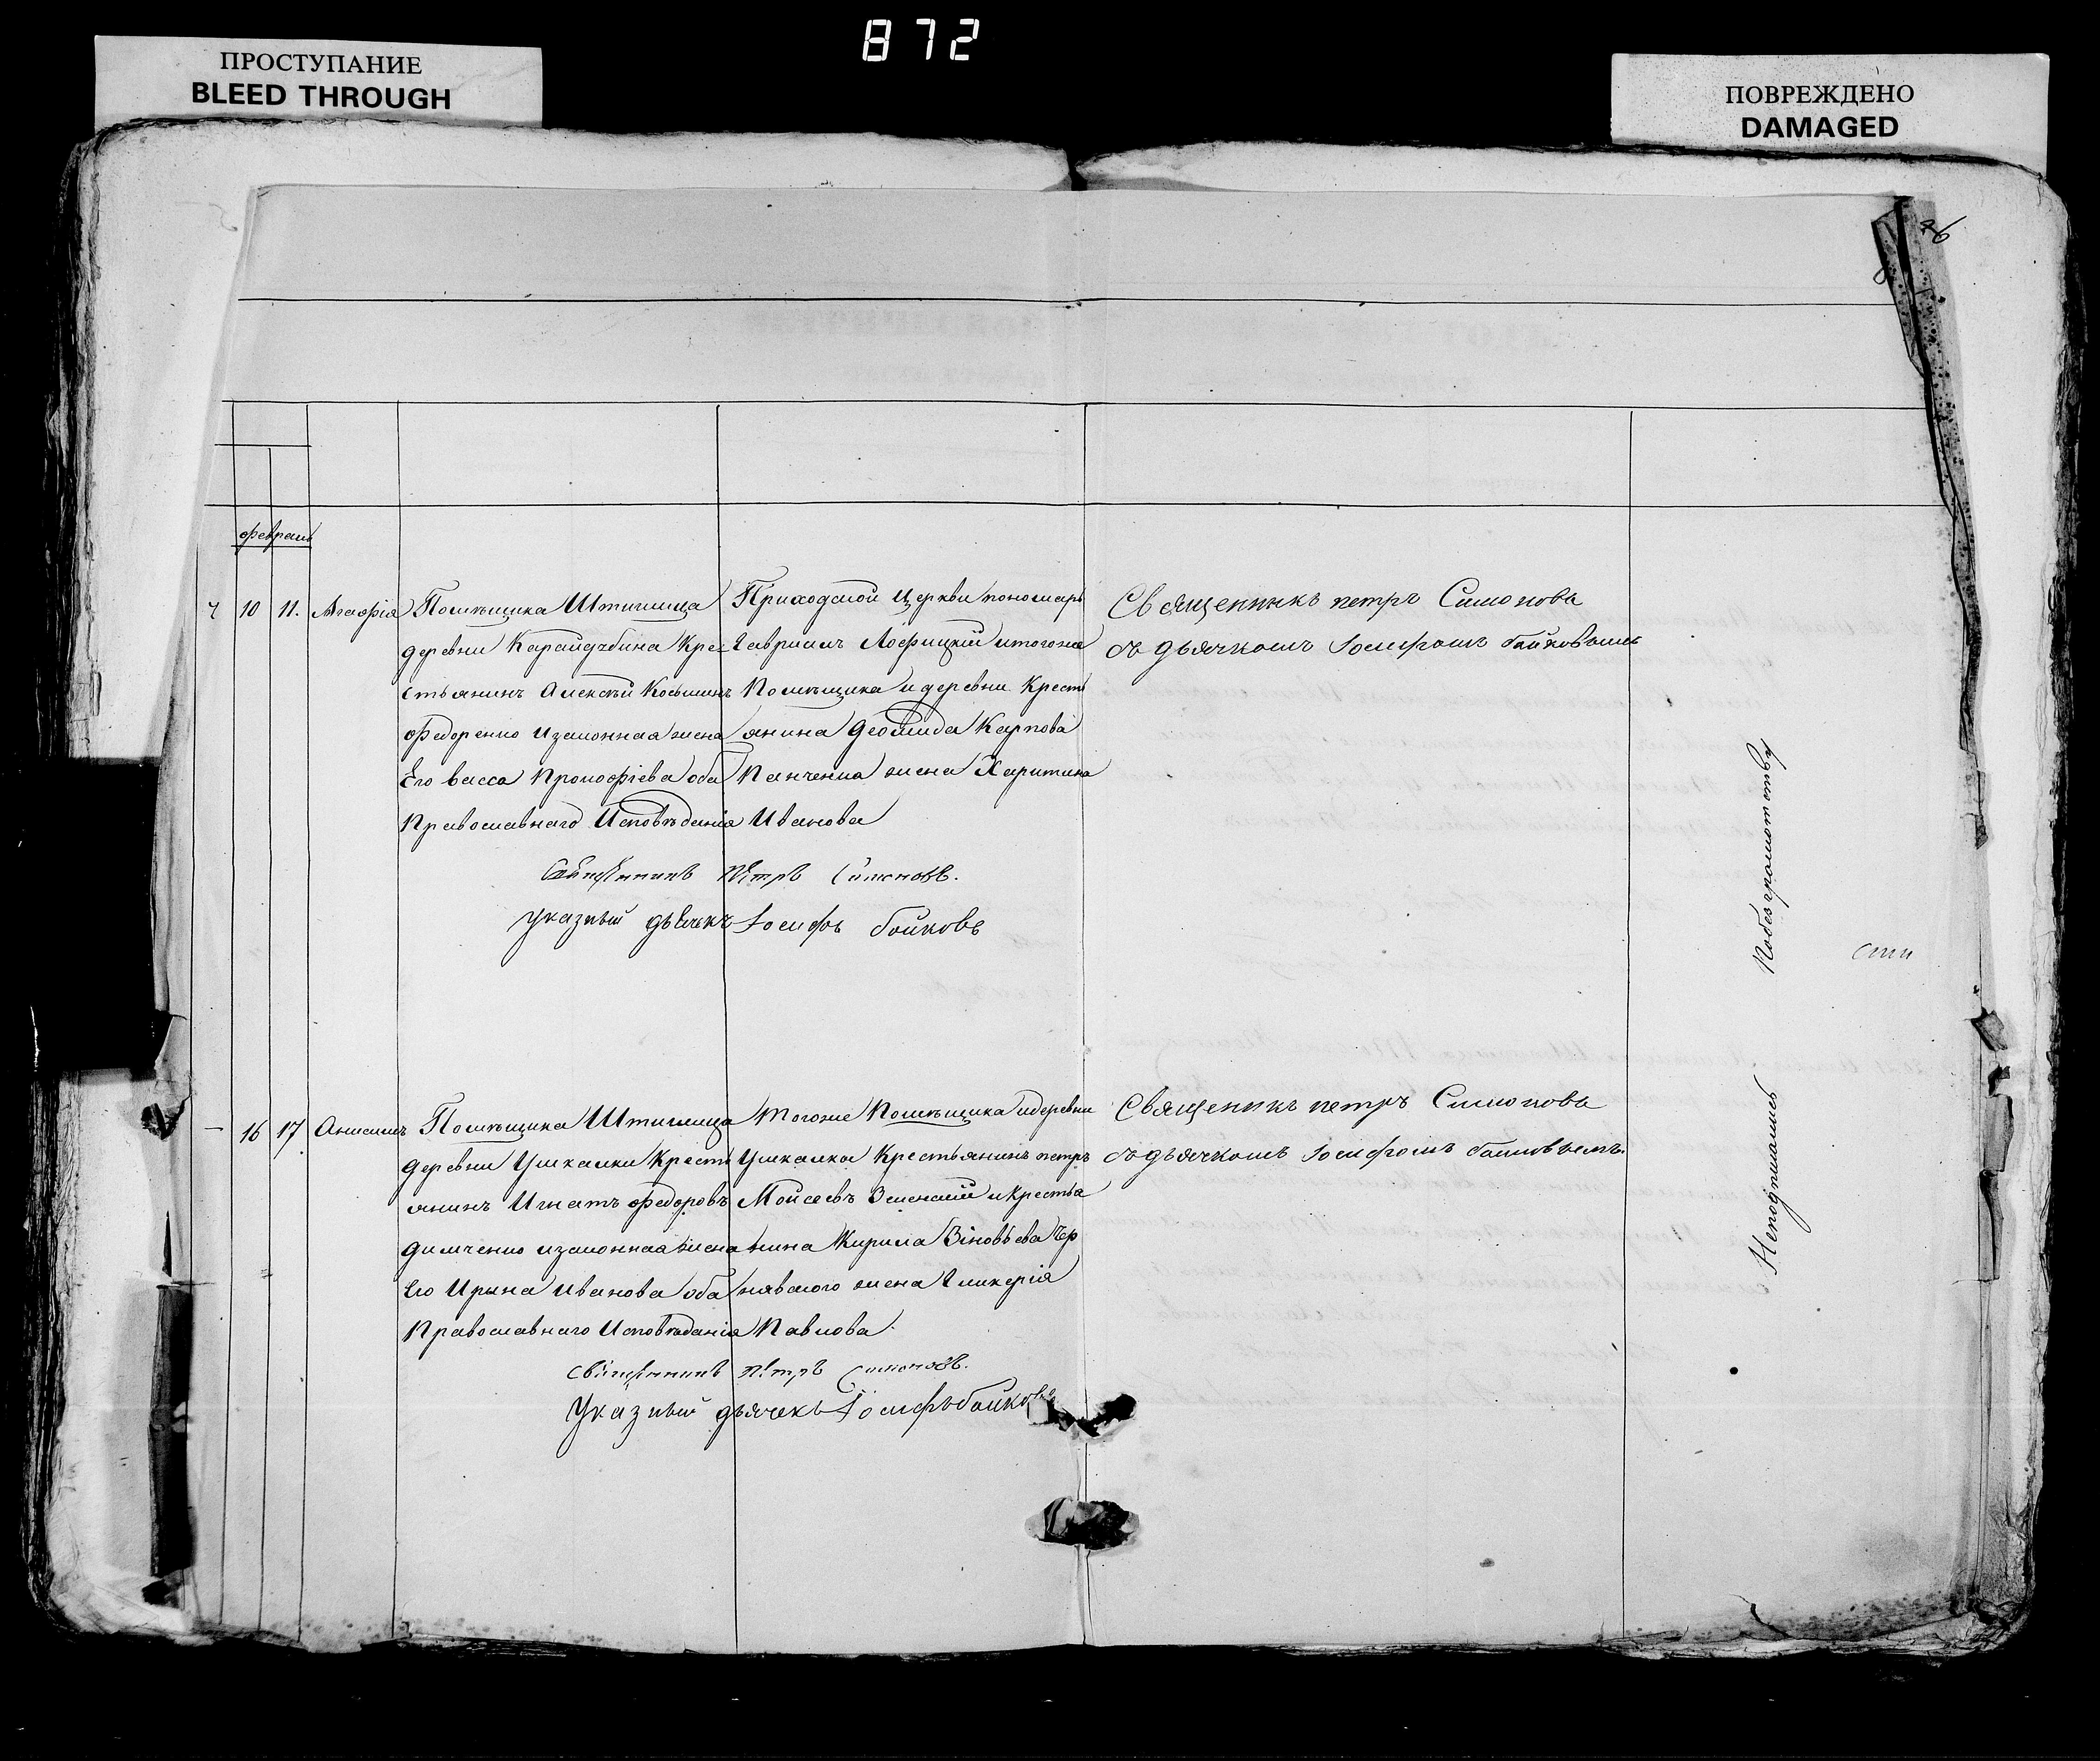 872
ПРОСТУПАНИЕ
BLEED THROUGH
ПОВРЕЖДЕНО
DAMAGED
февраль
10 11. Агафія
Помѣщика Штигиица
деревни Карайдубина Кре
стьянинъ Алексѣй Косьминъ
Федоренко и законная жена
Его Васса Прокофіева оба
Православнаго Исповѣданія
Приходской Церкви пономарь
Гавріилъ Лофицкій и тогоже
Помѣщика и деревни Кресть
янина Деомида Карпова
Панченка жена Харитина
Иванова
Священникъ петръ Симоновъ
съ дьячкомъ Іосифомъ байковымъ
Священникъ Петръ Симоновъ.
указный дьячекъ Іосифъ байковъ
16 17 Анисимъ
Помѣщика Штигиица
деревни Ушкалки Кресть
янинъ Игнатъ Федоровъ
Димченко и законная жена
Его Ирина Иванова оба
Православнаго Исповѣданія
Тогоже Помѣщика и деревни
Ушкалка Крестьянинъ петръ
Мойсеевъ Зеленскій и Крестья
нина Кирила Зіновьева Чер
нявского жена Гликерія
Павлова.
Священикъ петръ Симоновъ
съ дьячкомъ Іосифомъ байковымъ.
Священникъ Петръ Симоновъ.
Указный дьячекъ Іосифъ байковъ
По безграмотству
Неподписались
сти